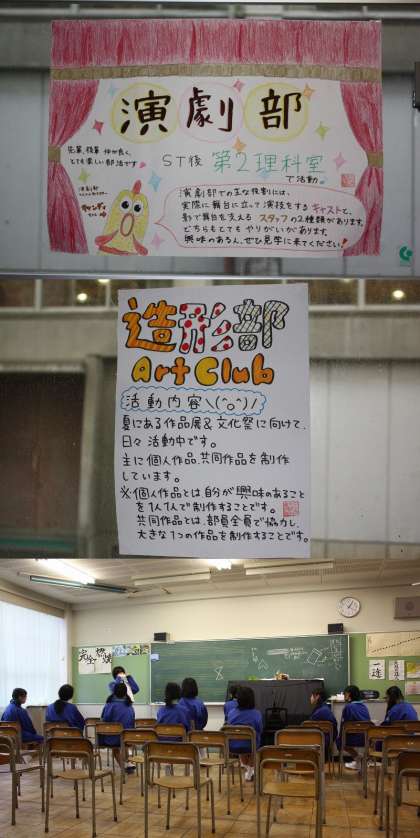 演劇部
先輩、後輩 仲が良く、
とても楽しい部活です
ST後 第2理科室
で活動
演劇部
キャンディ
ちゃん→
演劇部での主な役割には、
実際に舞台に立って演技をするキャストと、
影で舞台を支える スタッフの2種類があります。
どちらもとてもやりがいがあります。
興味のある人、ぜひ見学に来てください!
造形部
Art Club
活動内容\(^o^)/
夏にある作品展&文化祭に向けて、
日々活動中です。
主に個人作品、共同作品を制作
しています。
※個人作品とは自分が興味のあること
を1人1人で制作することです。
共同作品とは、部員全員で協力し、
大きな1つの作品を制作することです。
完全燃焼
一連